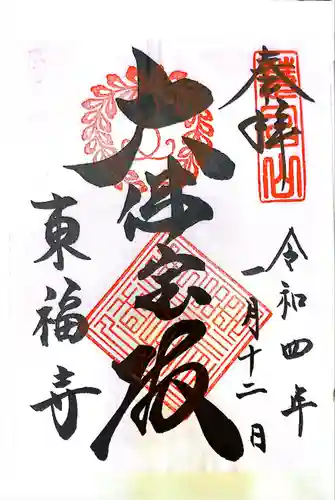 奉拝
慧日山
令和四年
一月十二日
大佛宝殿
東福寺